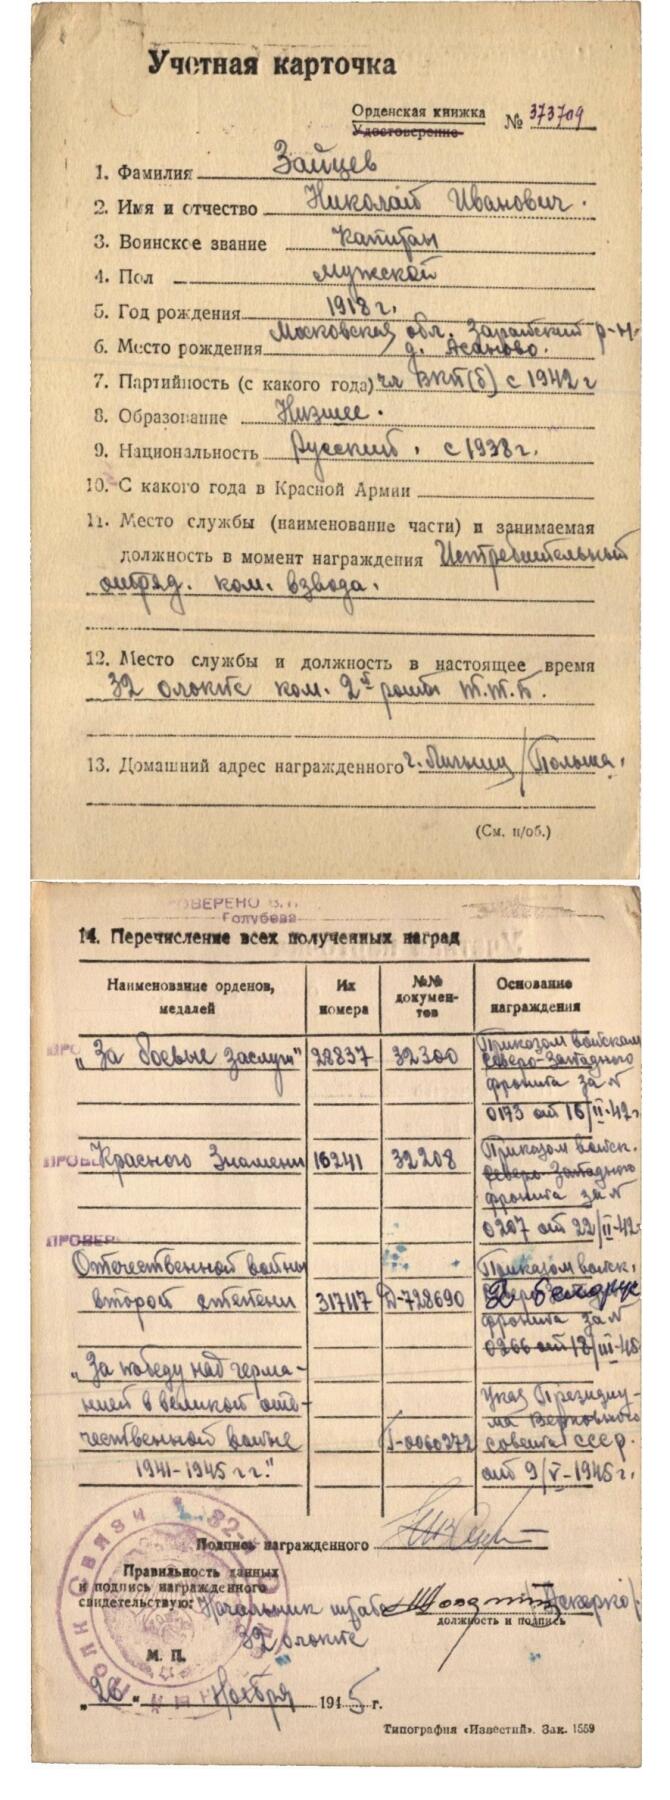 Учетная карточка
Орденская книжка
Удостоверение
№ 373709
1. Фамилия Зайцев
2. Имя и отчество Николай Иванович.
3. Воинское звание капитан
4. Пол мужской
5. Год рождения 1918 г.
Московская обл. Зарайский р-н.
6. Место рождения д. Асаново.
7. Партийность (с какого года) чл ВКП(б) с 1942 г
8. Образование Низшее.
9. Национальность Русский. с 1938 г.
10. С какого года в Красной Армии
11. Место службы (наименование части) и занимаемая
должность в момент награждения Истребительный
отряд. ком. взвода.
12. Место службы и должность в настоящее время
32 ком. 2й роты Т.Т.Б.
13. Домашний адрес награжденного г. Лигниц / Польша.
(См. н/об.)
ПРОВЕРЕНО
Голубева
14. Перечисление всех полученных наград
Наименование орденов, медалей
Их номера
№№ докумен-тов
Основание награждения
„За боевые заслуги" 28837 32300 Приказом войскам
Северо-Западного
фронта за №
0193 от 16/II-42г
Красного Знамени 16241 32208 Приказом войск.
Северо-Западного
фронта за №
0207 от 22/II-42г
ПРОВЕР
Отечественной войны Приказом войск.
второй степени 317117 Д-728690 2 Белорус
фронта за №
0266 от 18/III-45
„За победу над Герма-
нией в великой оте- Указ Президиу-
ма Верховного
чественной войне Г-0060372 совета СССР.
1941-1945 г г." от 9/V-1945 г.
Подпись награжденного
Правильность данных
и подпись награжденного
свидетельствую: Начальник штаба
должность и подпись
32
М. П.
„26" Ноября 1945 г.
Типография «Известий». Зак. 1559